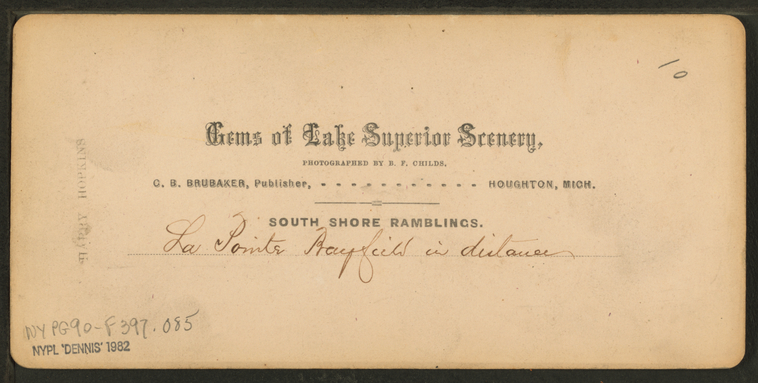 10
Gems of Lake Superior Scenery,
PHOTOGRAPHED BY B. F. CHILDS.
C. B. BRUBAKER, Publisher, - - - - - - - - - - - HOUGHTON, MICH.
SOUTH SHORE RAMBLINGS.
La Pointe Bayfield in distance
HARRY HOPKINS
NYPG90-F397.085
NYPL 'DENNIS' 1982